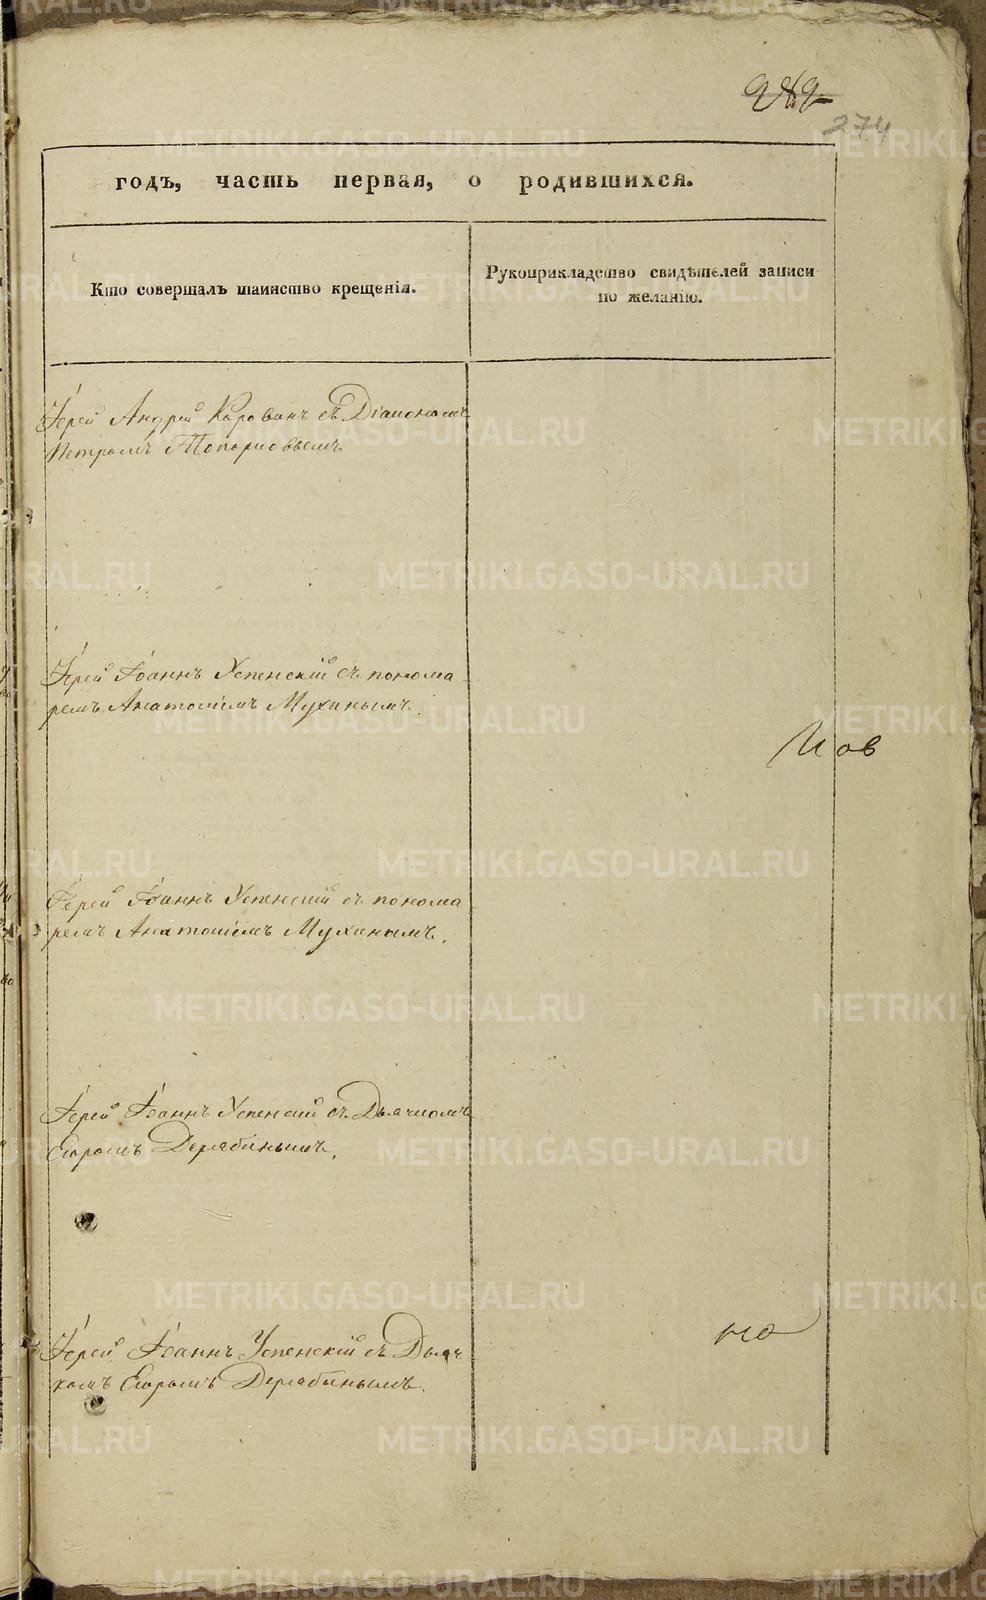 282
274
годъ, часть первая, о родившихся.
Кто совершалъ таинство крещенія.
Рукоприкладство свидѣтелей записи
по желанію.
Іерей Андрей съ Діакономъ
Петромъ Топорковымъ
Іерей Іоаннъ Успенскій съ понома
ремъ Анатоліемъ Мухинымъ.
Иов
Іерей Іоаннъ Успенскій съ понома
ремъ Анатоліемъ Мухинымъ.
Іерей Іоаннъ Успенскій съ Дьячкомъ
Егоромъ Дерябинымъ.
Іерей Іоаннъ Успенскій съ Дьяч
комъ Егоромъ Дерябинымъ.
METRIKI.GASO-URAL.RU